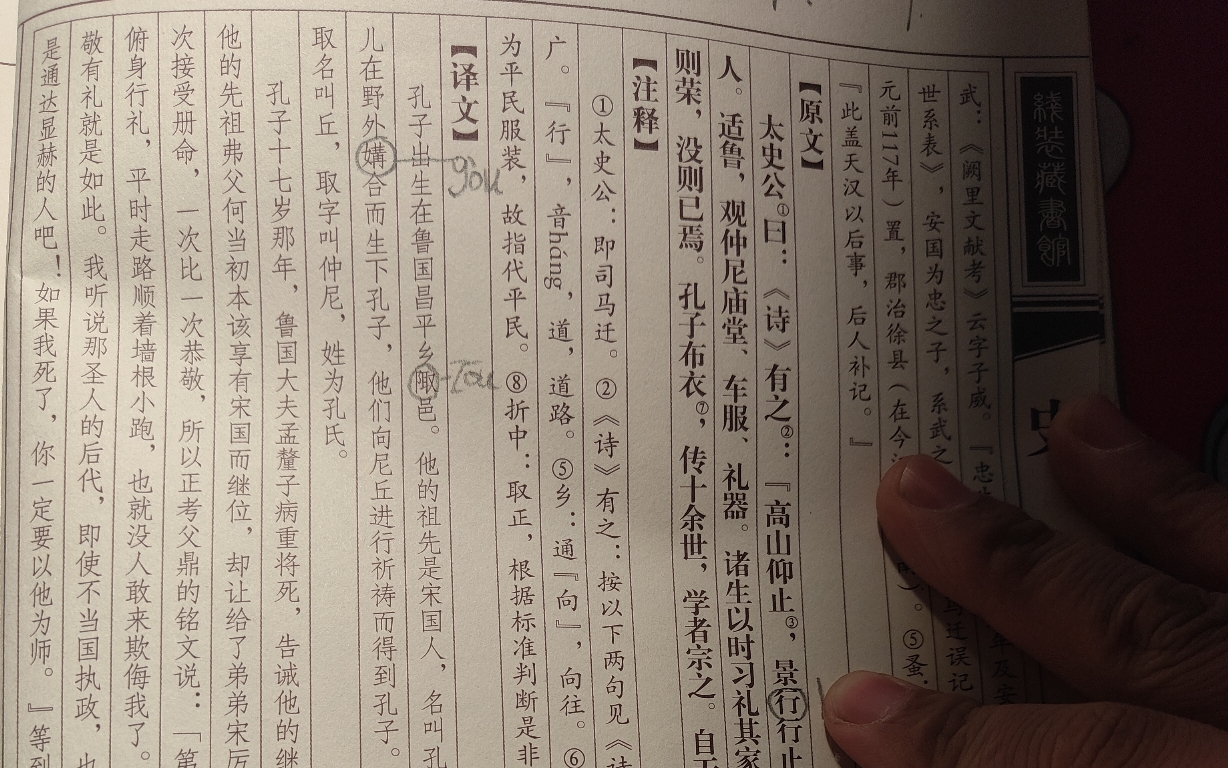 线装藏书馆
史
武：《阙里文献考》云字子威。『忠
世系表》，安国为忠之子，系武之
马迁误记
元前117年）置，郡治徐县（在今
）。⑤蚤：
『此盖天汉以后事，后人补记。』
【原文】
太史公①曰：《诗》有之②：『高山仰止③，景行行止
人。适鲁，观仲尼庙堂、车服、礼器。诸生以时习礼其家
则荣，没则已焉。孔子布衣⑦，传十余世，学者宗之。自天
【注释】
①太史公：即司马迁。②《诗》有之：按以下两句见《诗
广。『行』，音háng，道，道路。⑤乡：通『向』，向往。⑥
为平民服装，故指代平民。⑧折中：取正，根据标准判断是非
【译文】
孔子出生在鲁国昌平乡陬邑。他的祖先是宋国人，名叫孔
gou
Zou
儿在野外媾合而生下孔子，他们向尼丘进行祈祷而得到孔子。
取名叫丘，取字叫仲尼，姓为孔氏。
孔子十七岁那年，鲁国大夫孟釐子病重将死，告诫他的继
他的先祖弗父何当初本该享有宋国而继位，却让给了弟弟宋厉
次接受册命，一次比一次恭敬，所以正考父鼎的铭文说：「第
俯身行礼，平时走路顺着墙根小跑，也就没人敢来欺侮我了。
敬有礼就是如此。我听说那圣人的后代，即使不当国执政，也
是通达显赫的人吧！如果我死了，你一定要以他为师。』等到